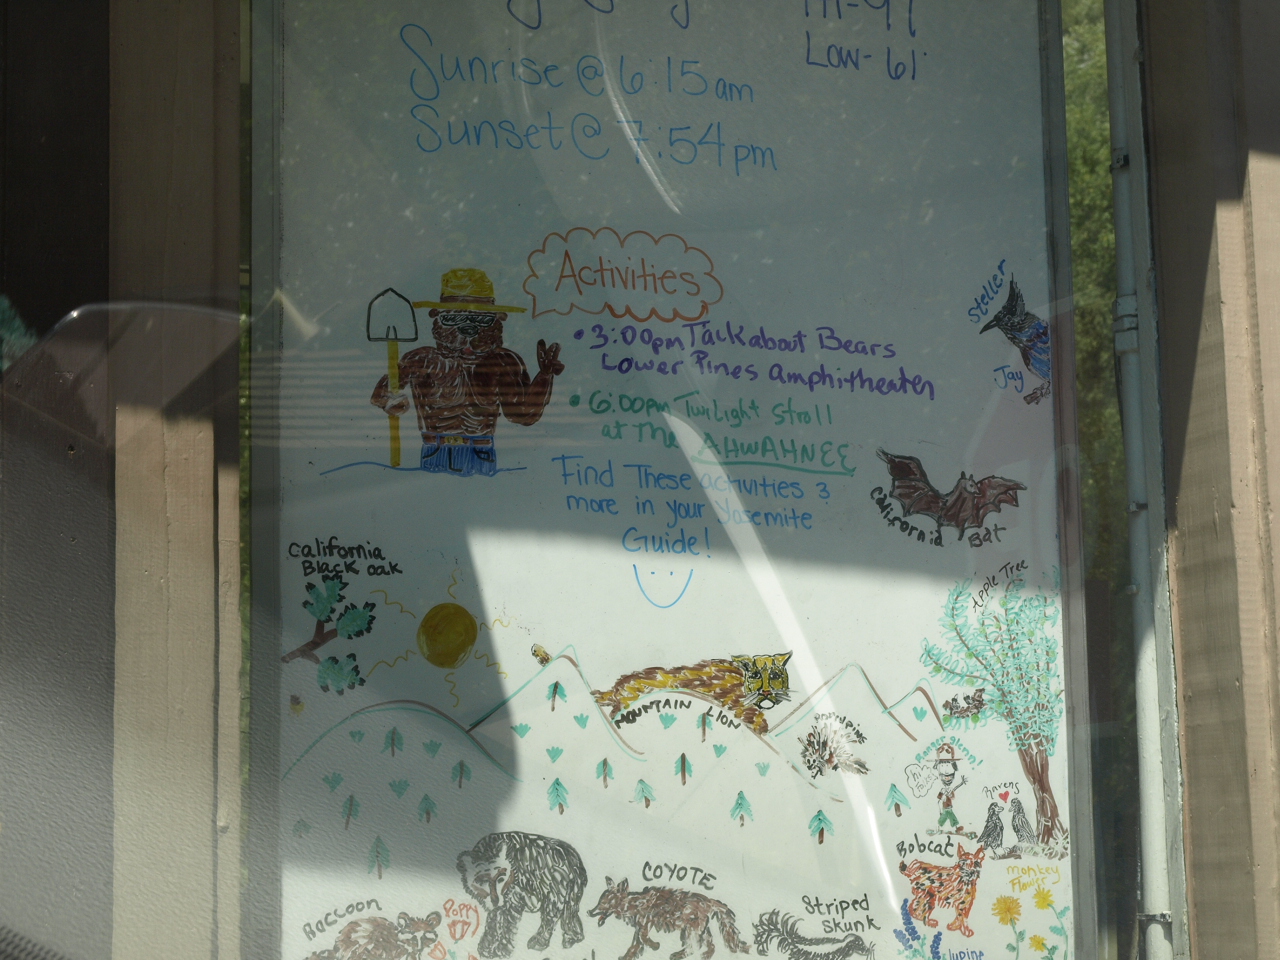 Hi-97
Low-61
Sunrise @ 6:15am
Sunset @ 7:54pm
Activities
• 3:00pm Talkabout Bears
Lower Pines Amphitheater
• 6:00pm Twilight Stroll
at The AHWAHNEE
Find These activities &
more in your Yosemite
Guide!
Steller
Jay
California Bat
California
Black oak
Apple Tree
MOUNTAIN LION
Porcupine
Ranger Glenn!
hi
Ravens
Bobcat
monkey
Flower
COYOTE
Striped
Skunk
Raccoon
Poppy
lupine